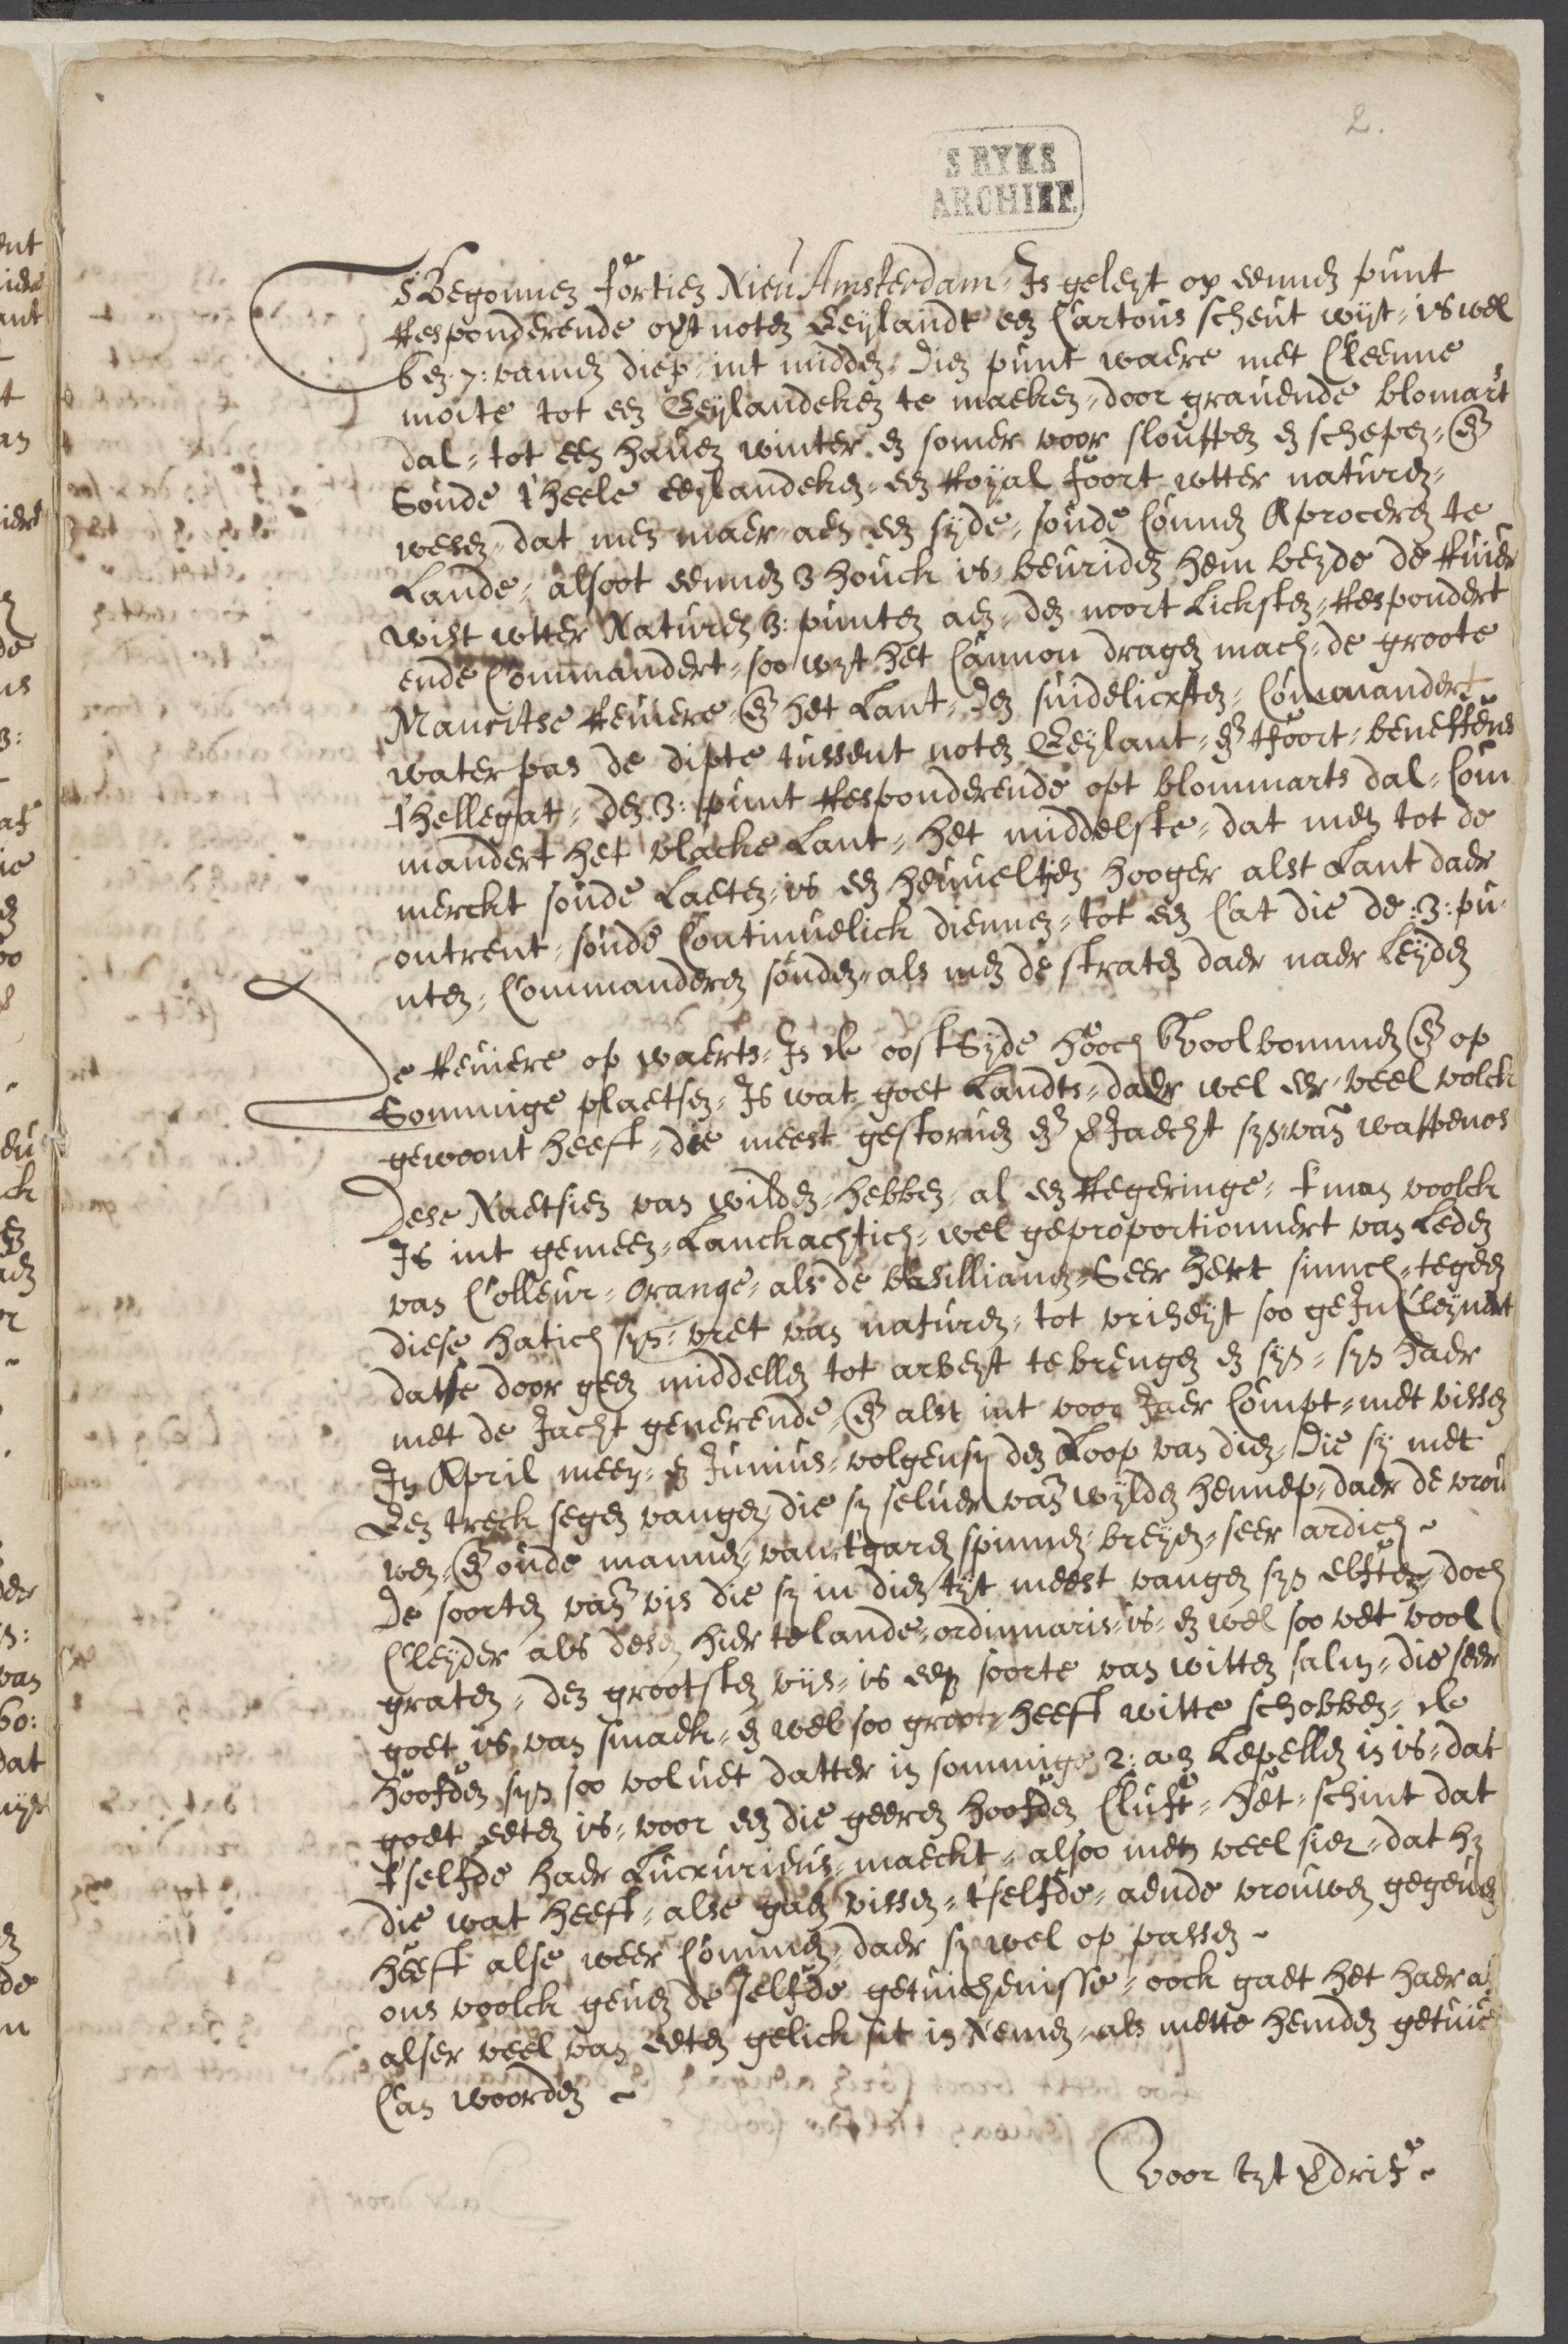 2.
S RYKS
ARCHIEF.
T'S Begonnen fortien Nieu Amsterdam. Is geleyt op eennen punt
Responderende opt noten Eeylandt een Cartous scheut wyt is wel
6 en 7: vamen diep int midden. Dien punt waere met Cleenne
moite tot een Eeylandeken te maeken door gravende blomarts
dal tot een haven winter en somer voor slouppen en schepen en
Soude t'heele eeylandeken een Royal foort wtter naturen
wesen dat men maer aen een syde soude Connen Aproceren te
Lande alsoot eennen 3 houck is bevriden hem beyde de Rivier
wist wtter Naturen 3: punten aen den noort Licksten Respondert
ende Commandert soo wyt het Cannon dragen mach de groote
Mauritse Reviere en het Lant den suidelicksten Commandert
waterpas de dipte tussent noten Eeylant en tfoort beneffens
t'hellegat den 3: punt Responderende opt blommarts dal Com
mandert het vlacke Lant het middelste dat men tot de
merckt soude Laeten is een heuveltjen hooger alst Lant daer
ontrent soude Continuelick diennen tot een Cat die de :3: pu
nten Commanderen souden als men de straten daer naer Leyden
De Reviere op waerts Is de oost Syde hooch Vool bommen en op
Sommige plaetsen Is wat goet Landts daer wel eer veel volck
gewoont heeft die meest gestorven en verjaecht syn van wappenos
Dese Naetsien van wilden hebben al een Regeringe t'man voolck
Is int gemeen Lanckachtich wel geproportionnert van Leden
van Colleur orange als de brasillianen Seer hert sinnich tegen
diese hatich syn vret van naturen tot vriheyt soo geInCleyndt
datse door geen middellen tot arbeyt te brengen en syn syn haer
met de Jacht generende en alst int voor Jaer Compt met vissen
In April meey en Junius volgensy den Loop van dien Die sy met
Een treck segen vangen die sy selver van wylden hennep daer de vrou
wen en oude mannen vant'garen spinnen breyen seer ardich
De soorten van vis die sy in dien tyt meest vangen syn elften doch
Cleyder als desen hier te lande ordinnaris is en wel soo vet vool
graten den grootsten vys is een soorte van witten salm die seer
goet is van smaek en wel soo groot heeft witte schobben de
hoofden syn soo vol vet datter in sommige 2: a 3 Lepellen in is dat
goet eeten is voor een die geeren hoofden Cluft het schint dat
t'selfde haer Lucxurieus maeckt alsoo men veel siet dat hy
die wat heeft alse gaen vissen t'selfde aende vrouwen gegeven
heeft alse weer Commen daer sy wel op passen
ons voolck geven de selfde getuichenisse oock gaet het haer a
alser veel van eeten gelick sit in Nemen als mette hemden getuic
Can woorden
Voor tyt verdrif